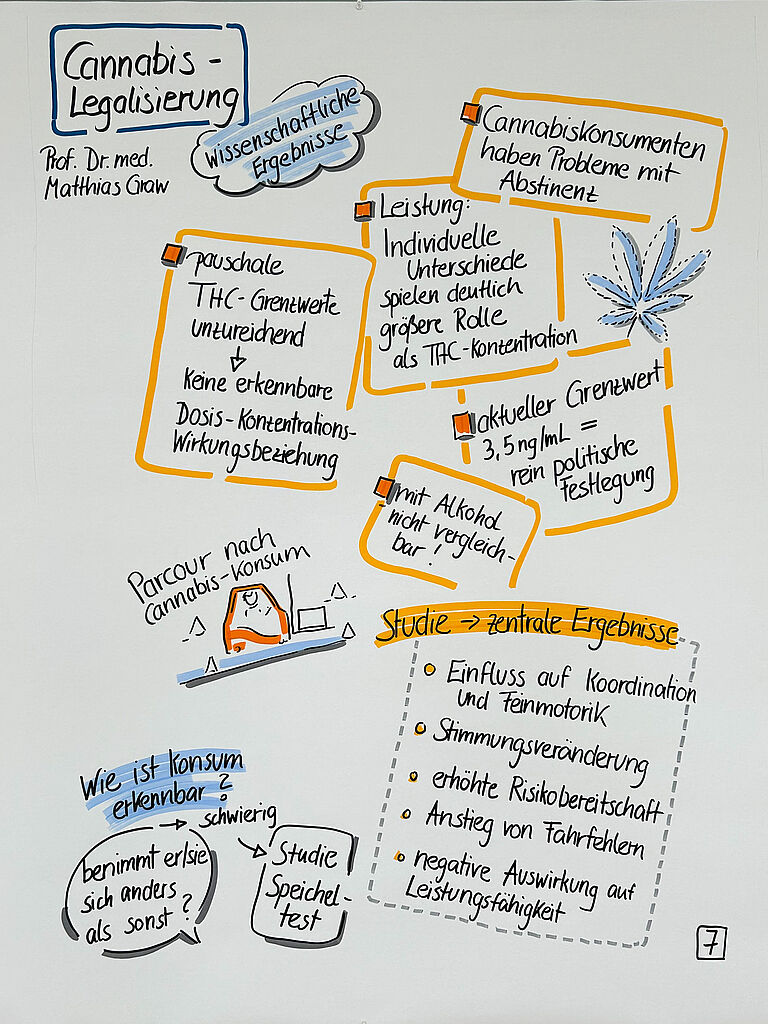 Cannabis -
Legalisierung
Prof. Dr. med.
Matthias Graw
wissenschaftliche
Ergebnisse
Cannabiskonsumenten
haben Probleme mit
Abstinenz
Leistung:
Individuelle
Unterschiede
spielen deutlich
größere Rolle
als THC-Konzentration
pauschale
THC-Grenzwerte
unzureichend
Keine erkennbare
Dosis-Konzentrations-
Wirkungsbeziehung
aktueller Grenzwert
3,5 ng/mL =
rein politische
Festlegung
mit Alkohol
nicht vergleich-
bar!
Parcour nach
Cannabis-Konsum
Studie → zentrale Ergebnisse
Einfluss auf Koordination
und Feinmotorik
Stimmungsveränderung
erhöhte Risikobereitschaft
Anstieg von Fahrfehlern
negative Auswirkung auf
Leistungsfähigkeit
Wie ist Konsum
erkennbar?
→ schwierig
benimmt er/sie
sich anders
als sonst?
Studie
Speichel-
test
7